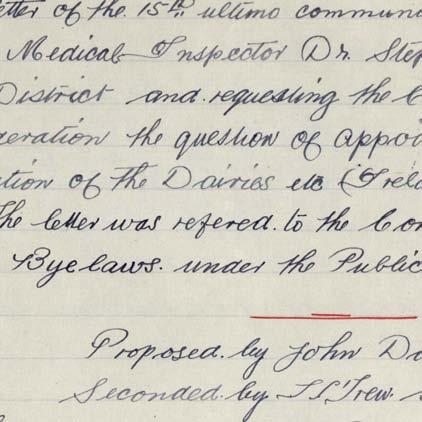 etter of the 15th ultimo commun
Medical Inspector Dr. Step
District and requesting the C
deration the question of appoi
tion of the Dairies etc (Irela
The letter was refered to the Com
Byelaws. under the Public
Proposed by John Do
Seconded by